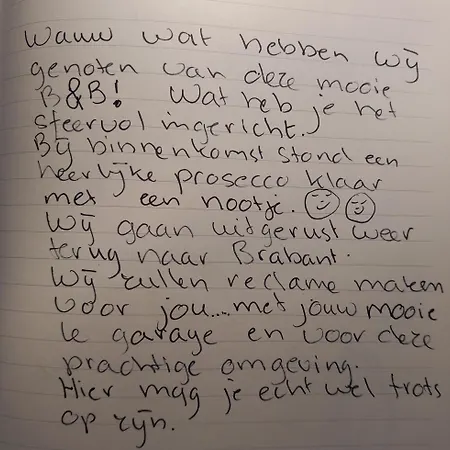 Wauw wat hebben wij
genoten van deze mooie
B&B! Wat heb je het
sfeervol ingericht.
Bij binnenkomst stond een
heerlijke prosecco klaar
met een nootje.
Wij gaan uitgerust weer
terug naar Brabant.
Wij zullen reclame maken
voor jou....met jouw mooie
le garage en voor deze
prachtige omgeving.
Hier mag je echt wel trots
op zijn.